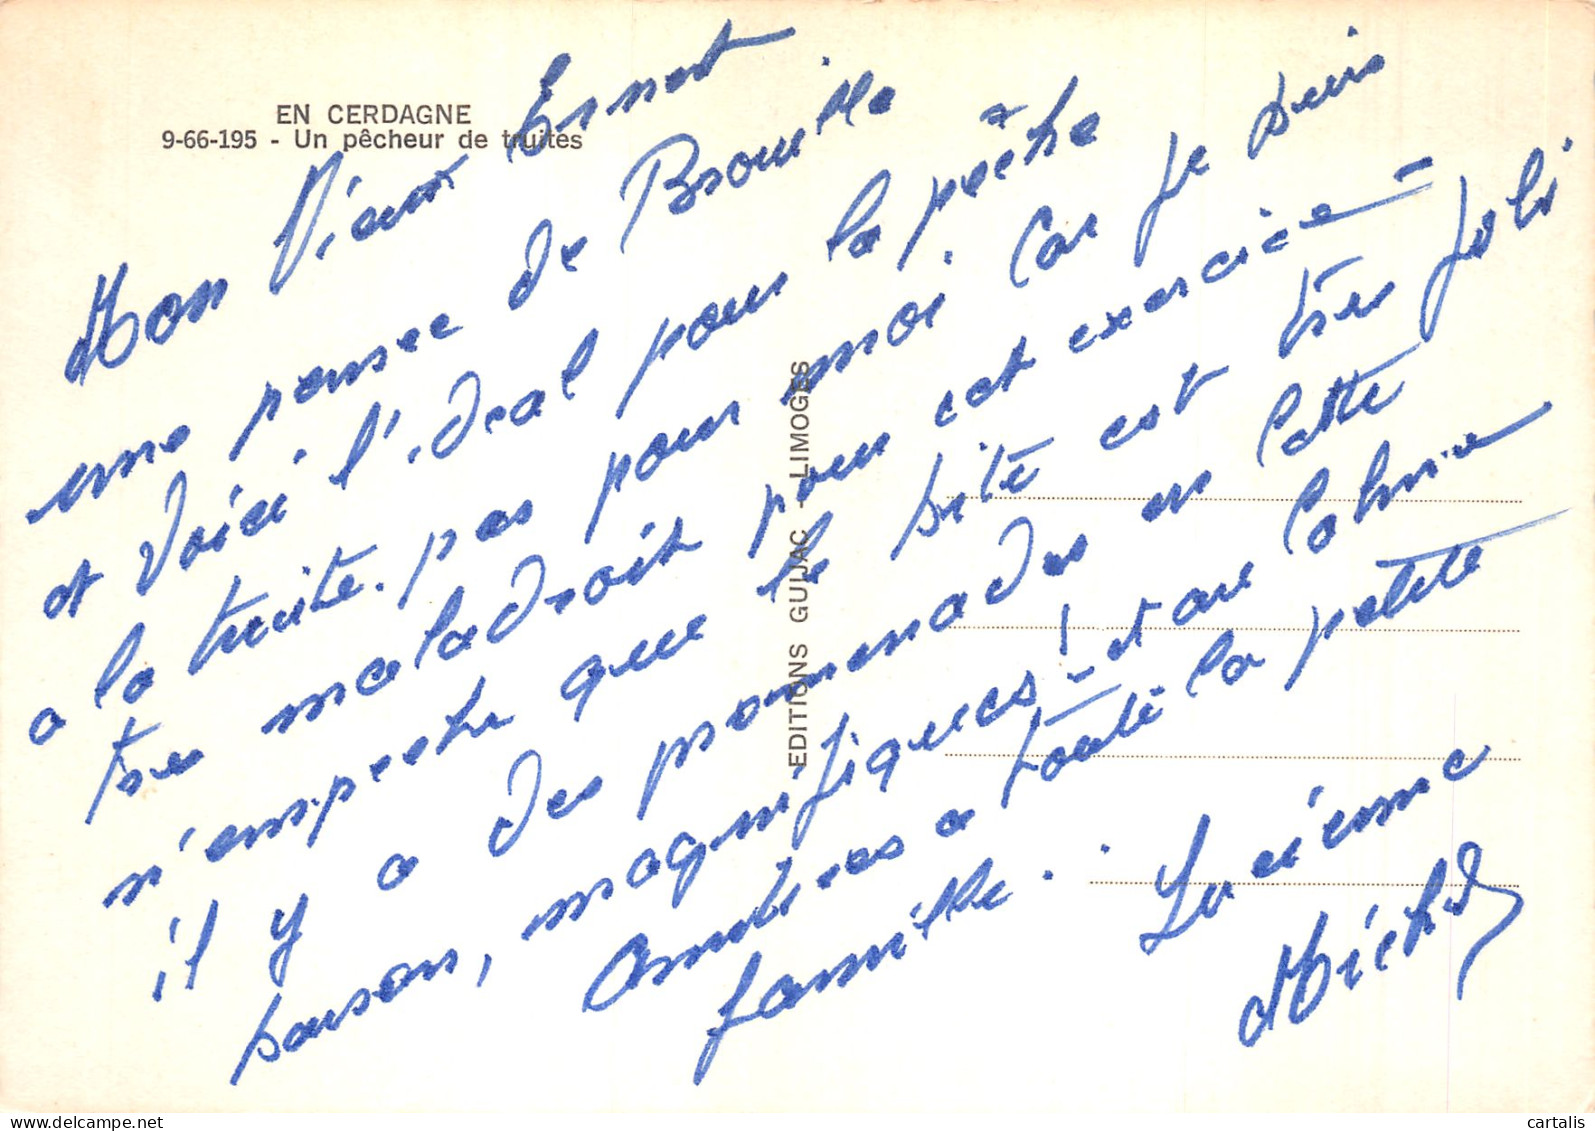 EN CERDAGNE
9-66-195 - Un pêcheur de truites
Mon Vieux Ernest
une pensee de Brouilla
et Voici l'ideal pour la pêche
a la truite. pas pour moi. Car je suis
tres maladroit pour cet exercice -
n'empeche que le site est très joli
il y a des promenades en cette
saison, magnifiques! - et au Calme
Amities a toute la petite
famille.
Lucienne
Michel
EDITIONS GUIJAC - LIMOGES
delcampe.net
cartalis